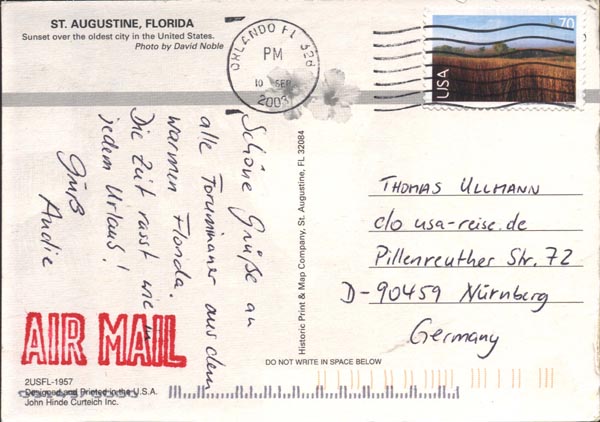 ST. AUGUSTINE, FLORIDA
Sunset over the oldest city in the United States.
Photo by David Noble
ORLANDO FL 328
PM
10 SEP
2003
70
USA
Schöne Grüße an
alle Foruminaner aus dem
warmen Florida.
Die Zeit rast wie in
jedem Urlaub!
Gruß
Andie
Historic Print & Map Company, St. Augustine, FL 32084
THOMAS ULLMANN
c/o usa-reise.de
Pillenreuther Str. 72
D-90459 Nürnberg
Germany
AIR MAIL
DO NOT WRITE IN SPACE BELOW
2USFL-1957
Designed and Printed in the U.S.A.
John Hinde Curteich Inc.